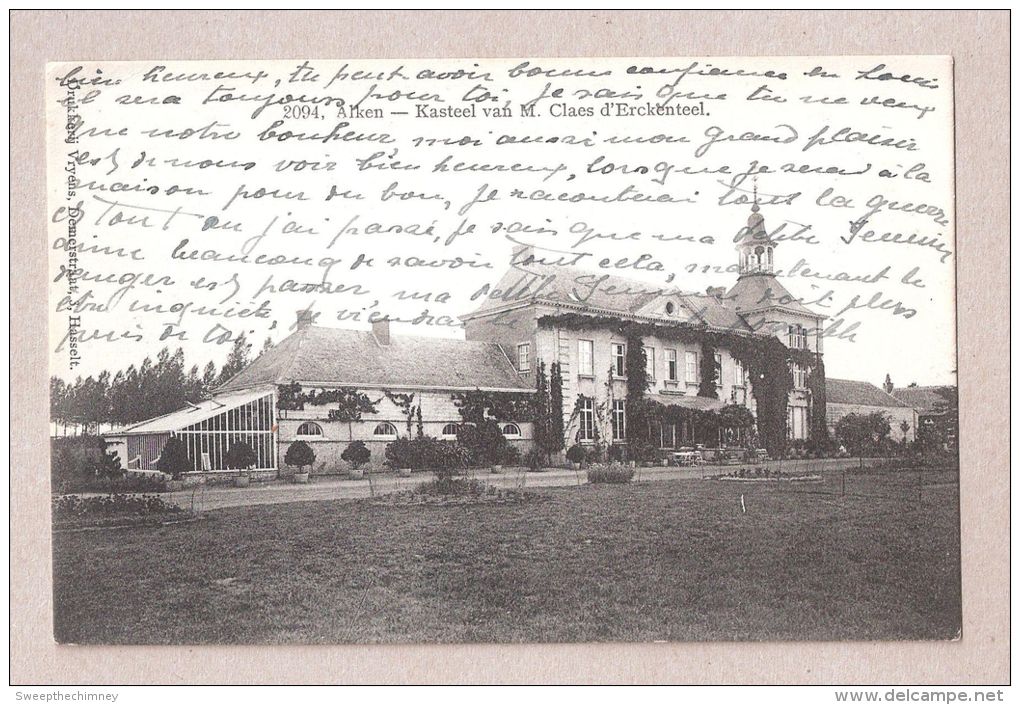 bien heureux, tu peut avoir bonne confiance en Louis
il sera toujours pour toi, je sais que tu ne veux
2094, Alken — Kasteel van M. Claes d'Erckenteel.
que notre bonheur, moi aussi mon grand plaisir
est de nous voir bien heureux, lorsque je serai à la
maison pour du bon, je raconterai tout la guerre
et tout ou j'ai passé, je sais que ma petite
aime beaucoup de savoir tout cela, maintenant le
danger est passer, ma petite soit plus
inquiète de toi, je viendrai
près de toi
Drukkerij Vryens, Demerstraat, 3, Hasselt.
Sweepthechimney
www.delcampe.net